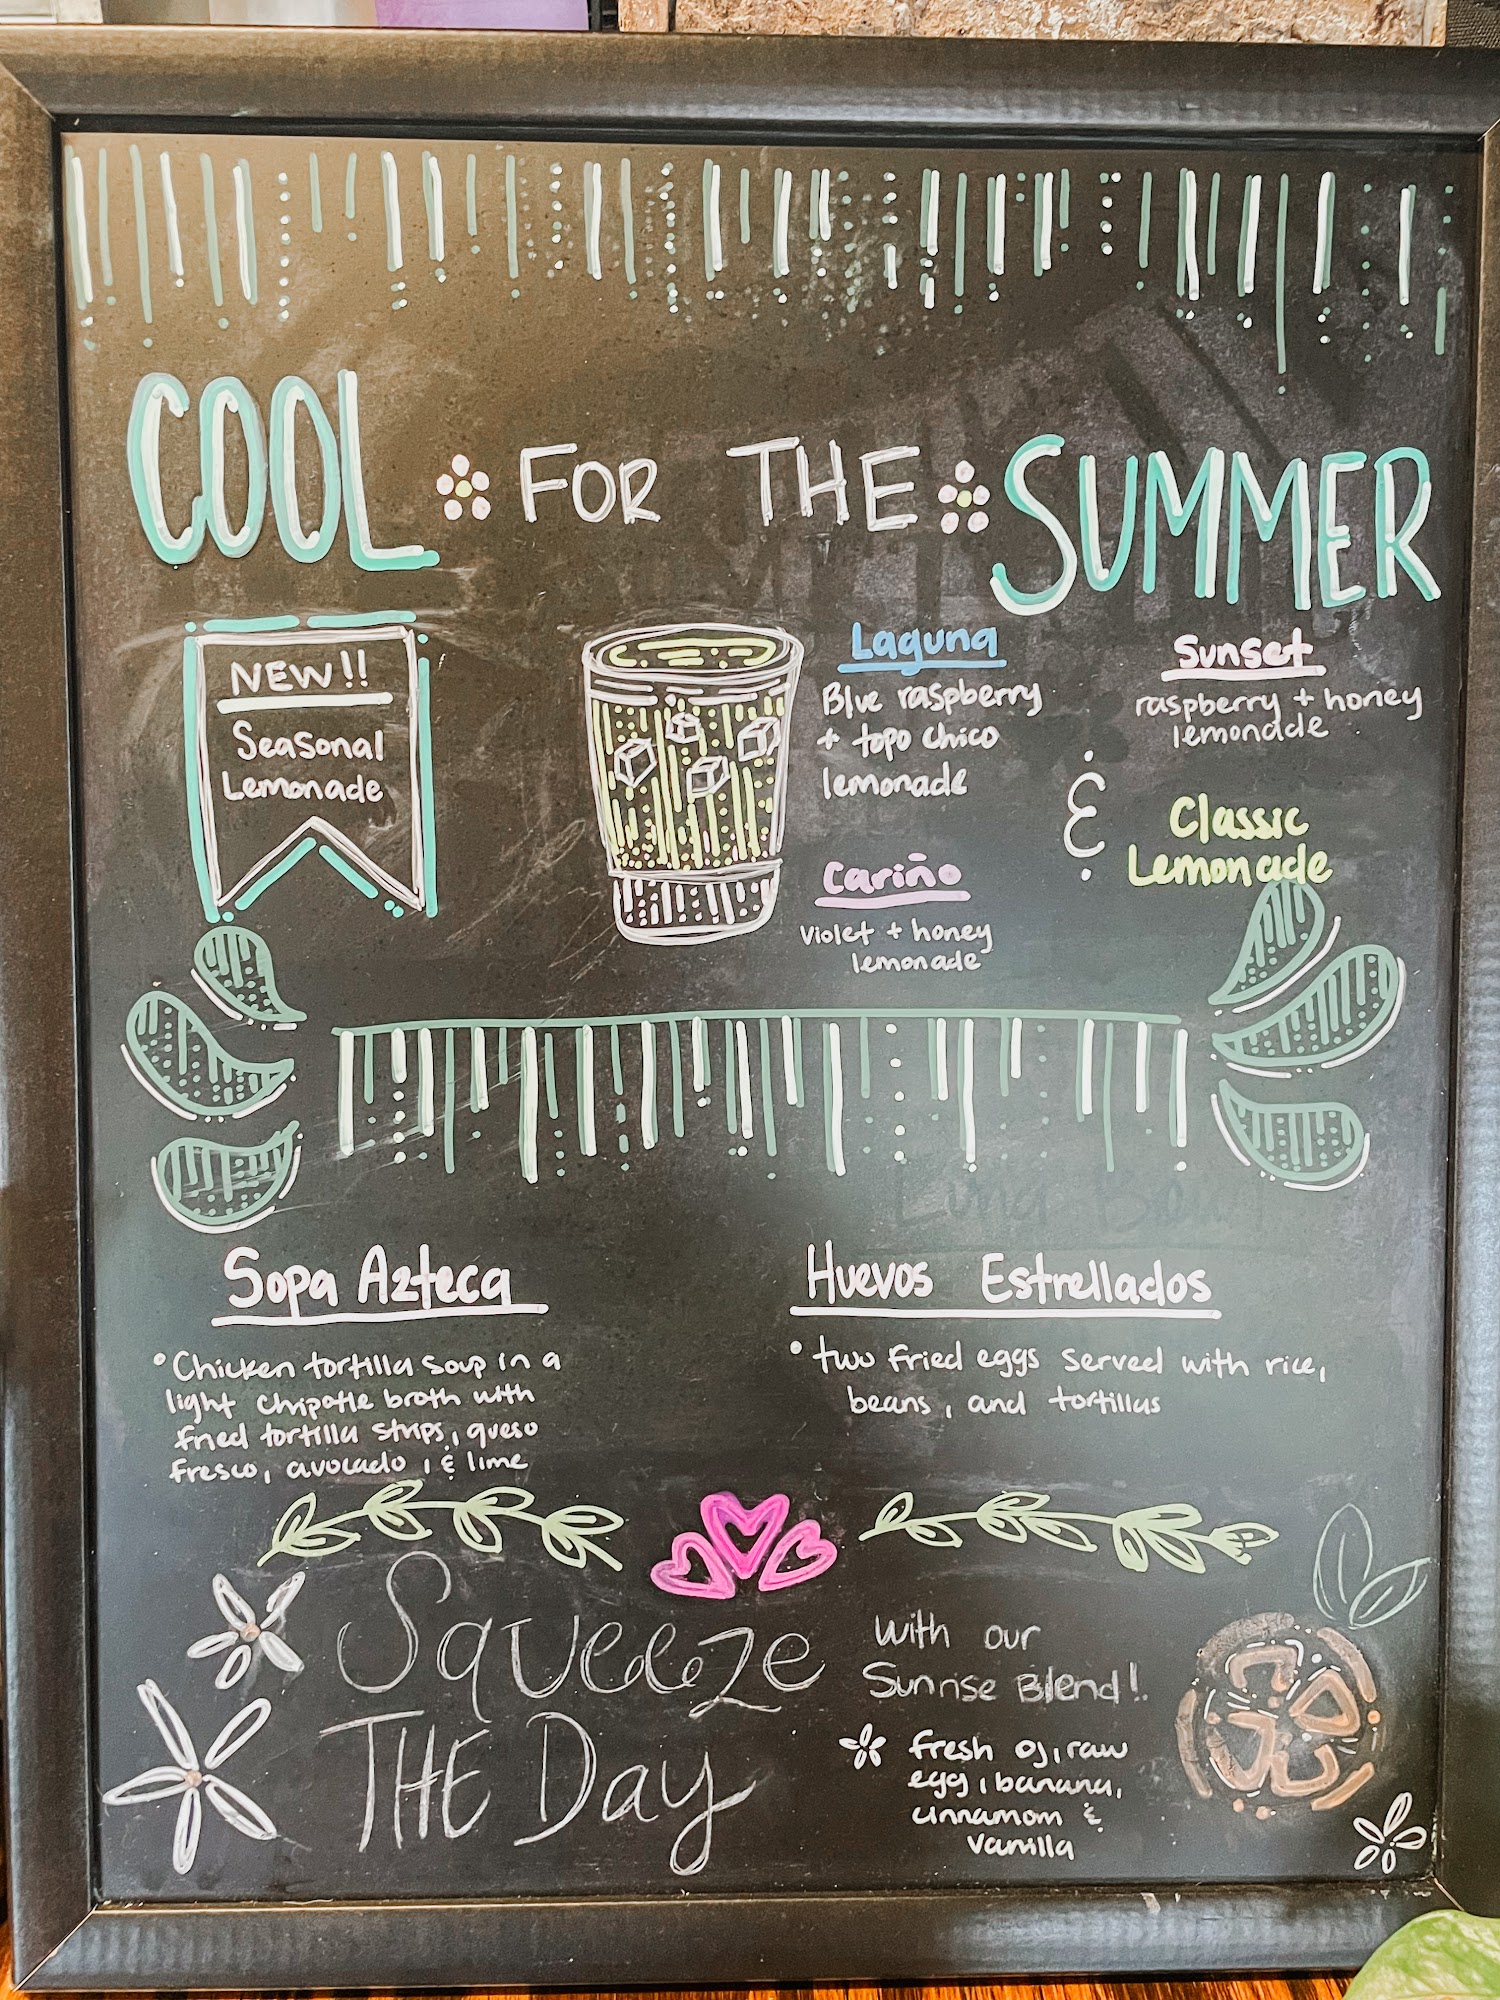 COOL FOR THE SUMMER
NEW!!
Seasonal
Lemonade
Laguna
Blue raspberry
+ topo chico
lemonade
Sunset
raspberry + honey
lemonade
Cariño
Violet + honey
lemonade
&
Classic
Lemonade
Sopa Azteca
• Chicken tortilla soup in a
light chipotle broth with
fried tortilla strips, queso
fresco, avocado, & lime
Huevos Estrellados
• two fried eggs served with rice,
beans, and tortillas
Squeeze
THE Day
With our
Sunrise Blend!
fresh oj, raw
egg, banana,
cinnamom &
vanilla